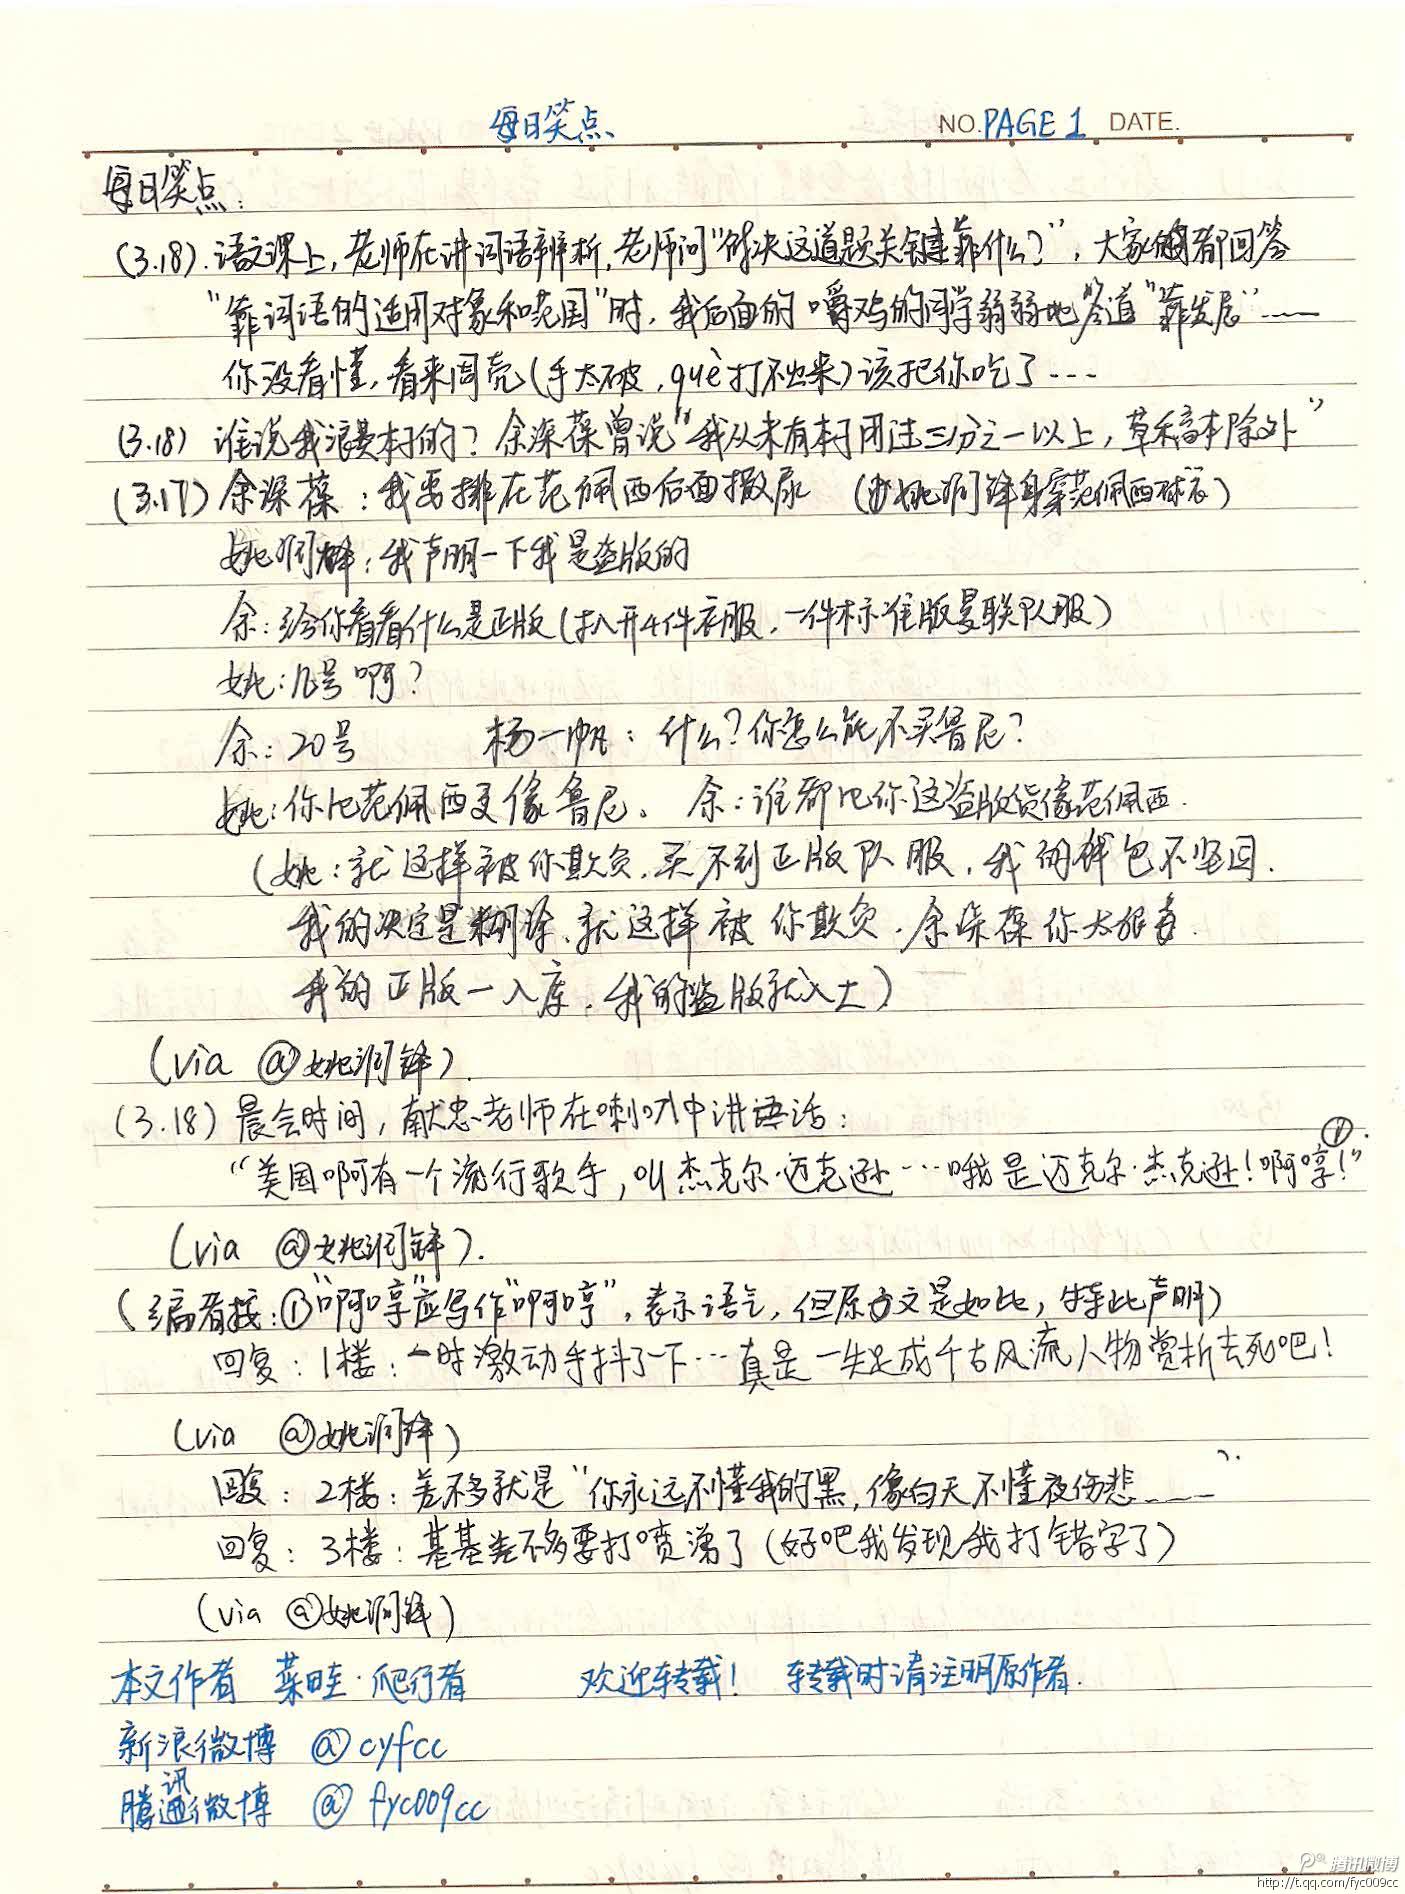 每日笑点
NO. PAGE 1 DATE.
每日笑点:
(3.18). 语文课上, 老师在讲词语辨析, 老师问"解决这道题关键靠什么?", 大家都回答
"靠词语的适用对象和范围"时, 我后面的嚼鸡的同学弱弱地答道"靠发怒"……
你没看懂, 看来周壳(手太破, què打不出来)该把你吃了…
(3.18) 谁说我浪费本子的? 余深葆曾说"我从未有本子用过三分之一以上, 草稿本除外"
(3.17) 余深葆: 我要排在范佩西后面撒尿 (姚润锋身穿范佩西球衣)
姚润锋: 我声明一下我是盗版的
余: 给你看看什么是正版(扒开4件衣服, 一件标准版曼联队服)
姚: 几号啊?
余: 20号 杨一帆: 什么? 你怎么能不买鲁尼?
姚: 你比范佩西更像鲁尼。 余: 谁都比你这盗版货像范佩西.
(姚: 就这样被你欺负, 买不到正版队服, 我的钱包不坚固.
我的决定是糊涂, 就这样被你欺负, 余深葆你太狠毒.
我的正版一入库, 我的盗版就入土)
(via @姚润锋).
(3.18) 晨会时间, 献忠老师在喇叭中讲话:
"美国啊有一个流行歌手, 叫杰克尔·迈克逊…哦是迈克尔·杰克逊! 啊哼!"①.
(via @姚润锋).
(编者按: ①"啊哼"应写作"啊哼", 表示语气, 但原文是如此, 特此声明)
回复: 1楼: 一时激动手抖了一下…真是一失足成千古风流人物赏析去死吧!
(via @姚润锋)
回复: 2楼: 差不多就是"你永远不懂我的黑, 像白天不懂夜伤悲……".
回复: 3楼: 基基差不多要打喷涕了(好吧我发现我打错字了)
(via @姚润锋)
本文作者 菜畦·爬行者 欢迎转载! 转载时请注明原作者.
新浪微博 @cyfcc
腾讯微博 @fyc009cc
腾讯微博
http://t.qq.com/fyc009cc